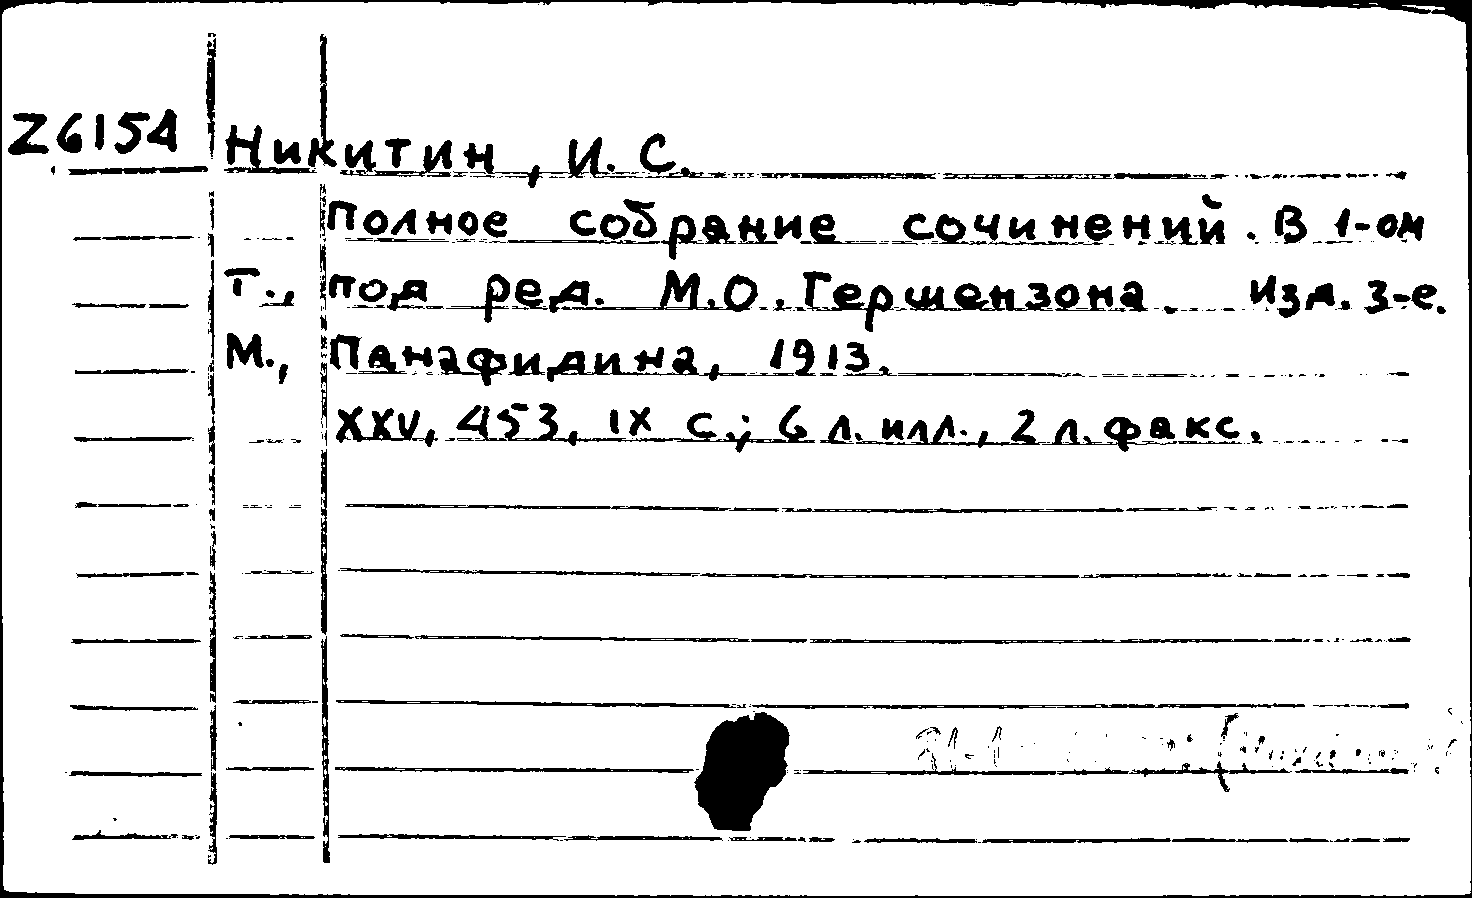 Z6154
Никитин, И. С.
Полное собрание сочинений. В 1-ом
т., под ред. М.О. Гершензона. Изд. 3-е.
М., Панафидина, 1913.
XXV, 453, IX с.; 6 л. илл., 2 л. факс.